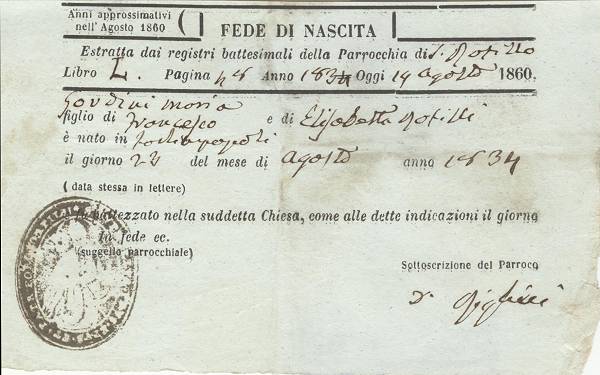 Anni approssimativi
nell'Agosto 1860
FEDE DI NASCITA
Estratta dai registri battesimali della Parrocchia di S. Rofillo
Libro L. Pagina 48 Anno 1834 Oggi 14 agosto 1860.
Maria
figlio di Francesco e di Elisabetta
è nato in Forlimpopoli
il giorno 22 del mese di agosto anno 1834
( data stessa in lettere)
fu battezzato nella suddetta Chiesa, come alle dette indicazioni il giorno
In fede ec.
(suggello parrocchiale)
Sottoscrizione del Parroco